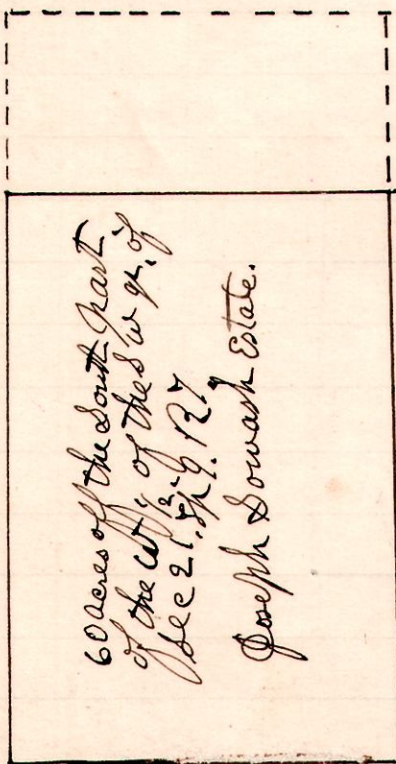 60 acres off the South part
of the W ½ of the S W qr. of
Sec 21. Tp 9. R 7
Joseph Sowash Estate.